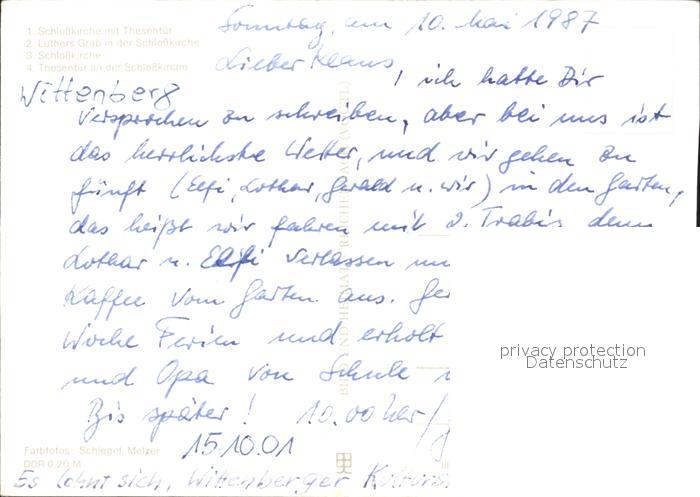 1. Schloßkirche mit Thesentür
2. Luthers Grab in der Schloßkirche
3. Schloßkirche
4. Thesentür an der Schloßkirche
Sonntag, am 10. Mai 1987
Lieber Klaus,
Wittenberg
ich hatte Dir
versprochen zu schreiben, aber bei uns ist
das herrlichste Wetter, und wir gehen zu
fünft (Elfi, Lothar, Gerald u. wir) in den Garten,
das heißt wir fahren mit 2. Trabis denn
Lothar u. Elfi verlassen
Kaffee vom Garten aus.
Woche Ferien und erholt
und Opa von Schule
Bis später! 10.00 Uhr/
15.10.01
Farbfotos: Schlegel, Melzer
DDR 0,20 M
Es lohnt sich, Wittenberger
privacy protection
Datenschutz